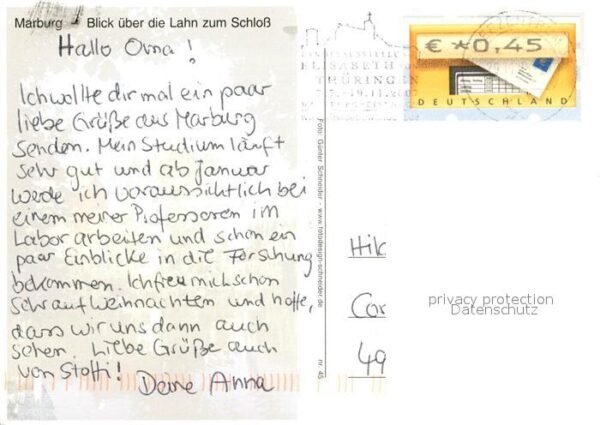 Marburg - Blick über die Lahn zum Schloß
Hallo Oma!
Ich wollte dir mal ein paar
liebe Grüße aus Marburg
senden. Mein Studium läuft
sehr gut und ab Januar
werde ich voraussichtlich bei
einem meiner Professoren im
Labor arbeiten und schon ein
paar Einblicke in die Forschung
bekommen. Ich freu mich schon
sehr auf Weihnachten und hoffe,
dass wir uns dann auch
sehen. Liebe Grüße auch
von Stoffi!
Deine Anna
Foto: Günter Schneider - www.fotodesign-schneider.de
nr 45
ELISABETH
THÜRINGEN
-19.11.2007
€ *0,45
DEUTSCHLAND
Hil
Cor
49
privacy protection
Datenschutz